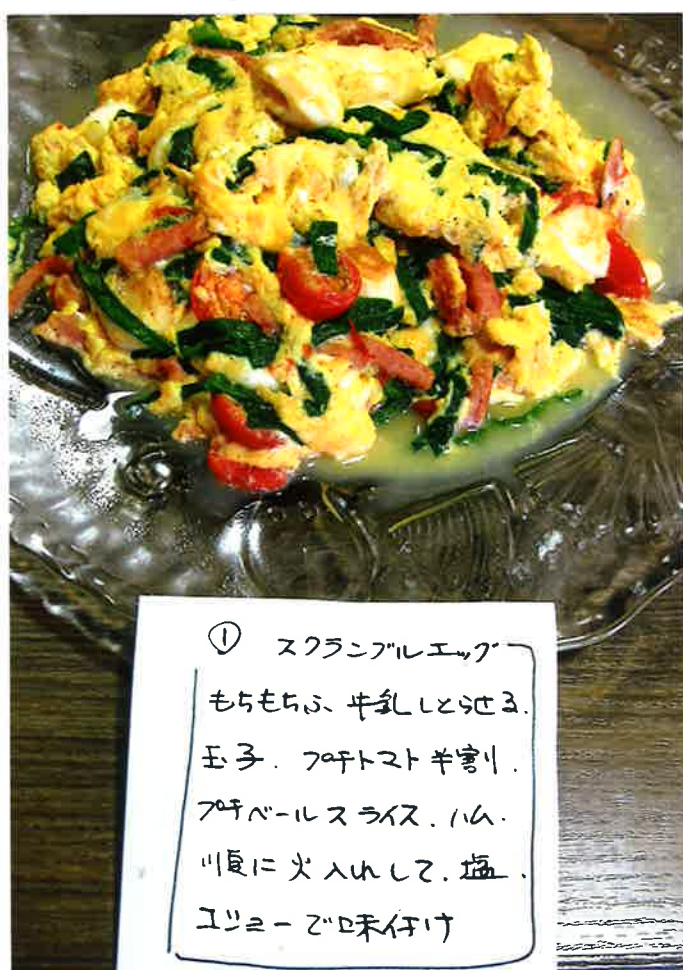 ① スクランブルエッグ
もちもちふ、牛乳しとらせる.
玉子. プチトマト半割.
プチベールスライス. ハム.
順に火入れして. 塩.
コショーで味付け